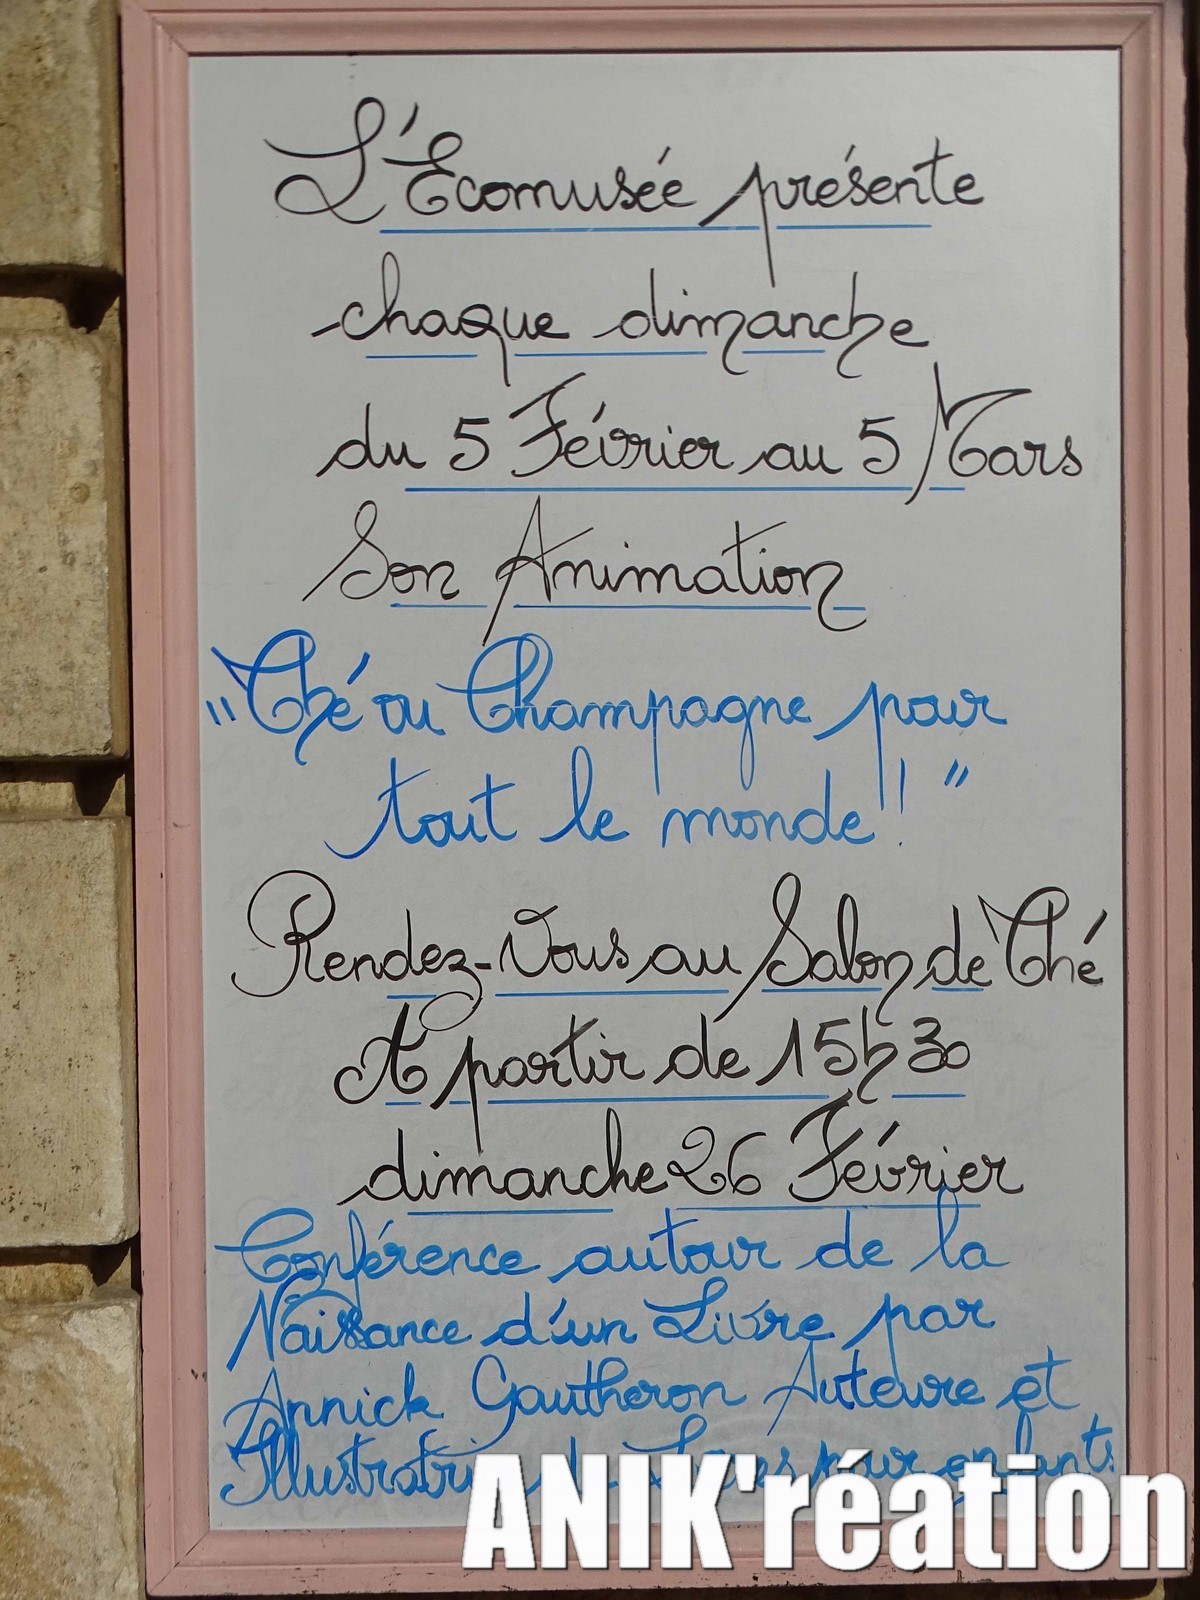 L'Ecomusée présente
chaque dimanche
du 5 Février au 5 Mars
Son Animation
"Thé ou Champagne pour
tout le monde!"
Rendez-Vous au Salon de Thé
A partir de 15h30
dimanche 26 Février
Conférence autour de la
Naissance d'un Livre par
Annick Gautheron Auteure et
Illustratrice de Livres pour enfants
ANIK'réation